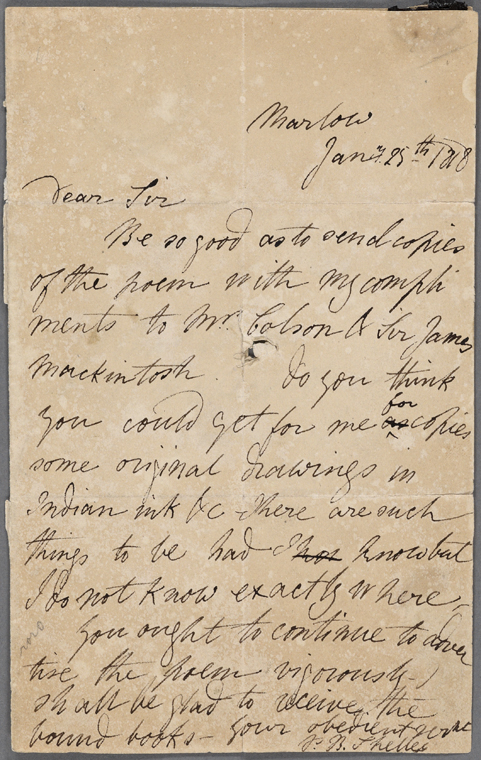 Marlow
Jany. 25th 1818
Dear Sir
Be so good as to send copies
of the poem with my compli
ments to Mr. Colson & Sir James
Mackintosh. Do you think
you could get for me as for copies
some original drawings in
Indian ink &c - There are such
things to be had I know but
I do not know exactly where,
You ought to continue to adver
tise the poem vigorously - I
shall be glad to receive the
bound books - your obedient
P. B. Shelley